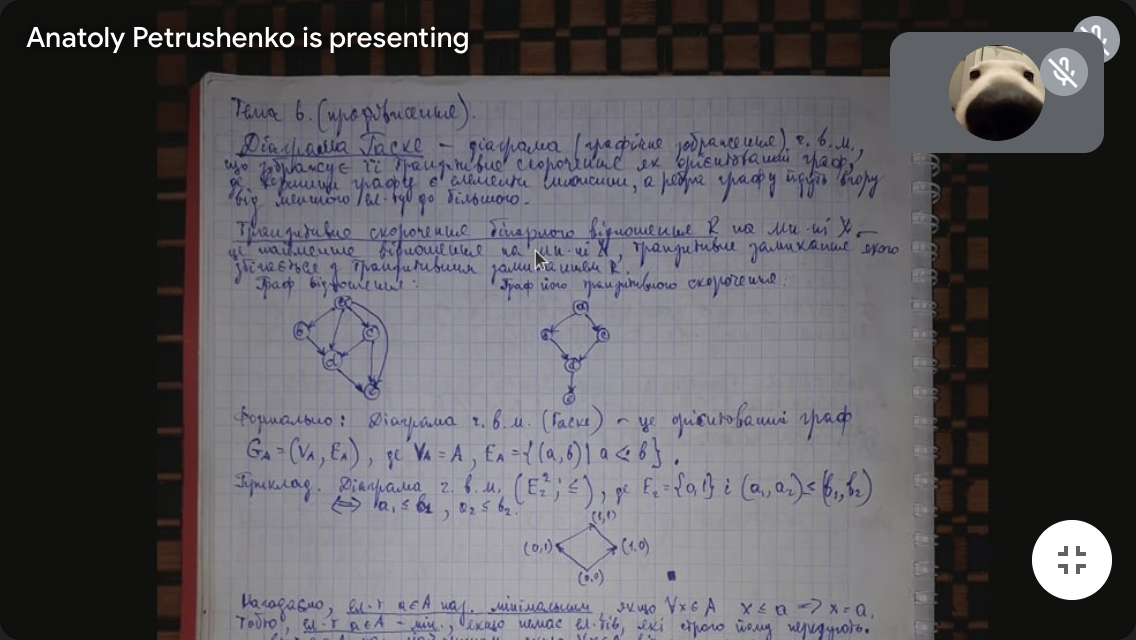 Anatoly Petrushenko is presenting
Тема 6. (продовження).
Діаграма Гассе – діаграма (графічне зображення) ч. в. м.,
що зображує її транзитивне скорочення як орієнтований граф,
де вершини графу є елементи множини, а ребра графу йдуть вгору
від меншого ел-ту до більшого.
Транзитивне скорочення бінарного відношення R на мн-ні X –
це найменше відношення на мн-ні X, транзитивне замикання якого
збігається з транзитивним замиканням R.
Граф відношення: Граф його транзитивного скорочення:
a a
b c b c
d d
e e
Формально: Діаграма ч. в. м. (Гассе) – це орієнтований граф
G_A = (V_A, E_A), де V_A = A, E_A = {(a, b) | a ⋖ b}.
Приклад. Діаграма ч. в. м. (E₂²; ≤), де E₂ = {0,1} і (a₁, a₂) ≤ (b₁, b₂)
⟺ a₁ ≤ b₁, a₂ ≤ b₂.
(1,1)
(0,1) (1,0)
(0,0)
Нагадаємо, ел-т a∈A наз. мінімальним, якщо ∀x∈A x ≤ a ⟹ x = a.
Тобто, ел-т a∈A – мін., якщо немає ел-тів, які строго йому передують.